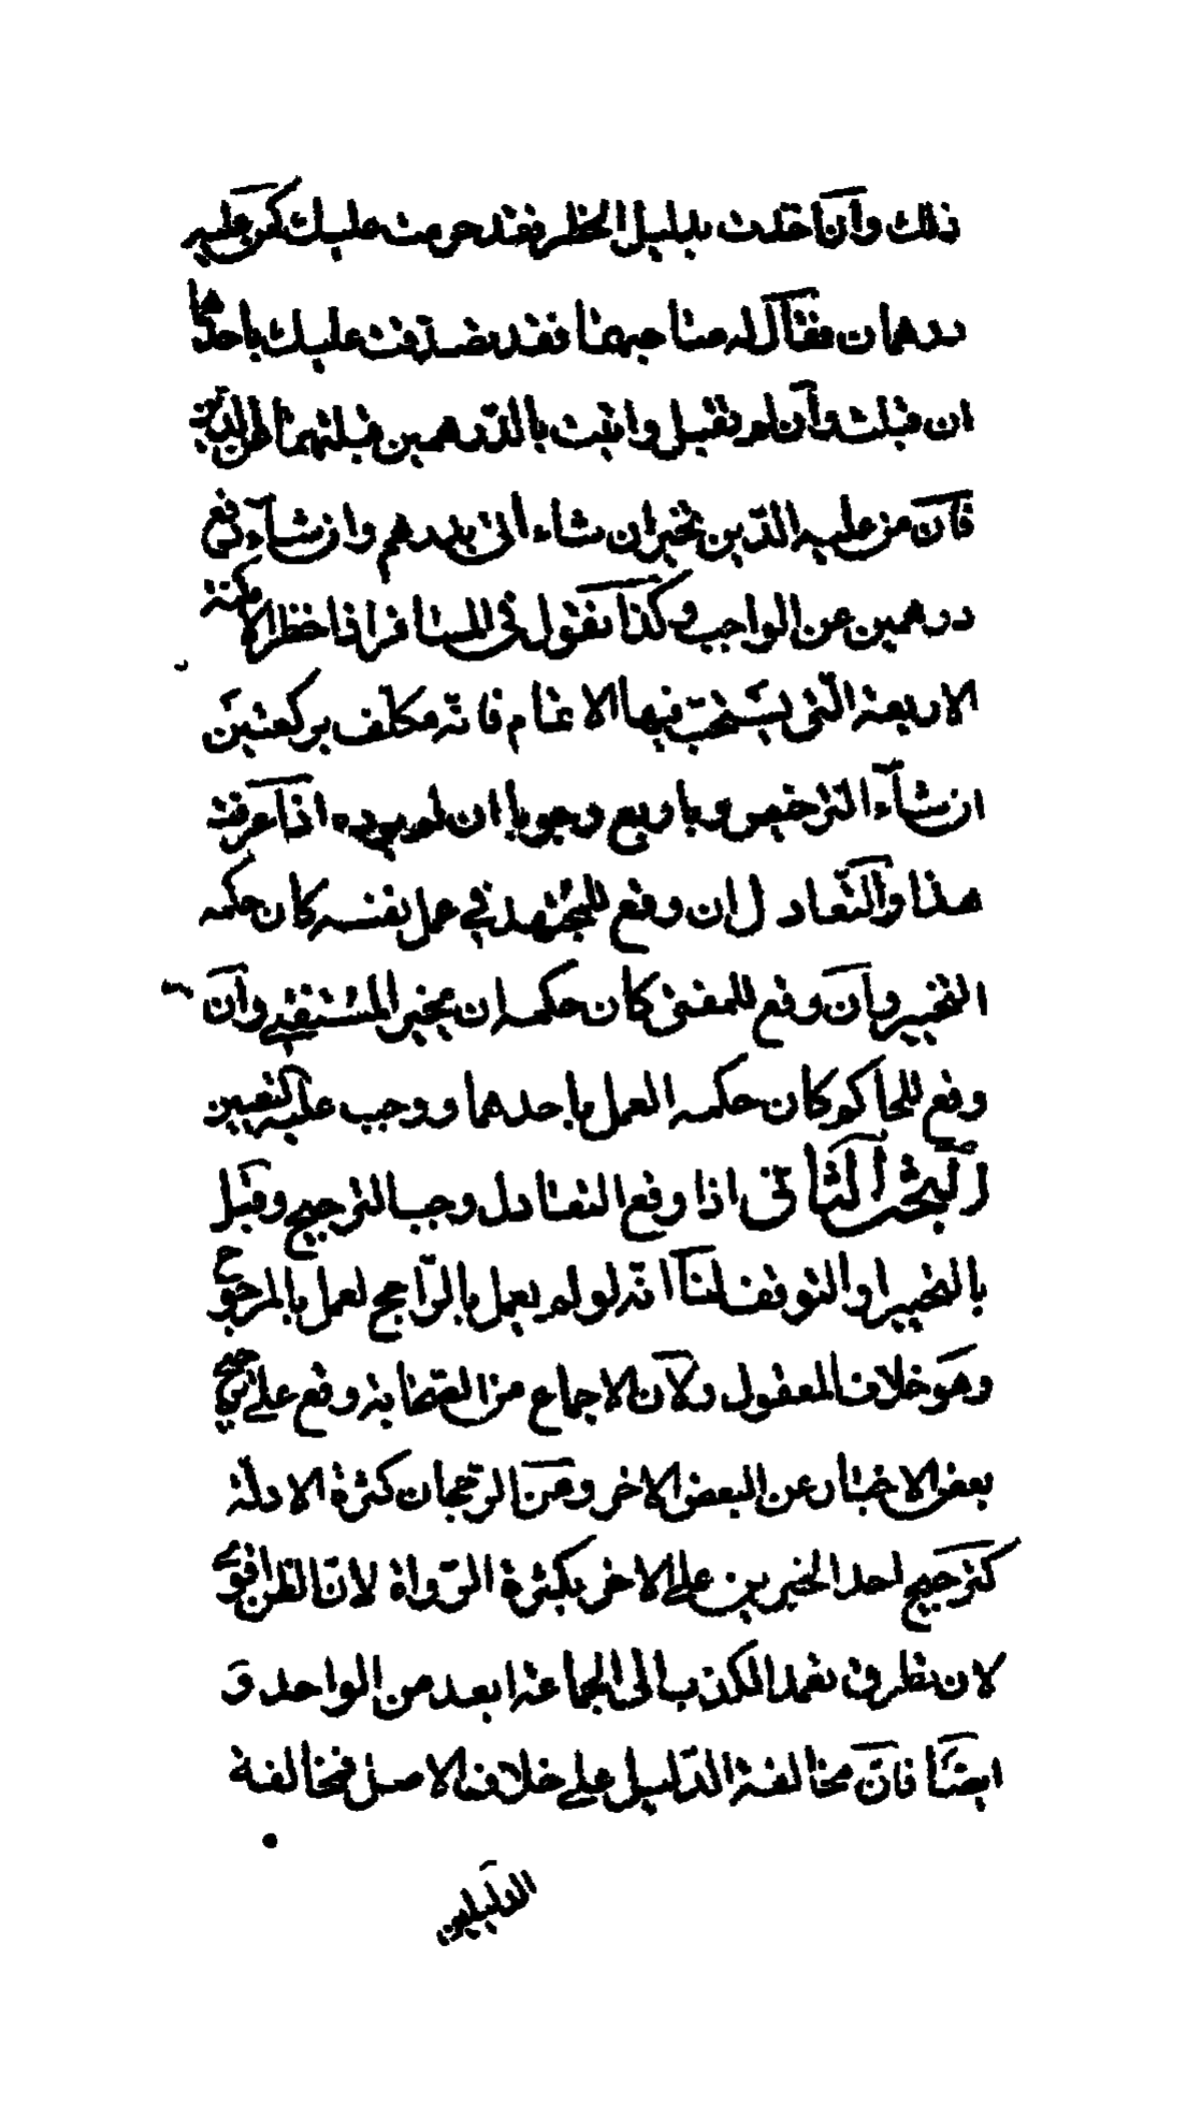 ذلك وان اخذت بدليل الحظر فقد حرمت عليك كمن عليه
درهمان فقال له صاحبهما فقد تصدقت عليك باحدهما
ان قبلت وان لم تقبل واتيت بالدرهمين قبلتهما عن الدين
فان من عليه الدين تخير ان شاء اتى بدرهم وان شاء دفع
درهمين عن الواجب وكذا نقول في المسافر اذا حضر الامكنة
الاربعة التي يستحب فيها الاتمام فانه مكلف بركعتين
ان شاء الترخيص وباربع وجوبا ان لم يرده اذا عرفت
هذا والتعادل ان وقع للمجتهد في عمل نفسه كان حكمه
التخيير وان وقع للمفتي كان حكمه ان يخير المستفتي وان
وقع للحاكم كان حكمه العمل باحدهما ووجب عليه التعيين
البحث الثاني اذا وقع التعادل وجب الترجيح وقيل
بالتخيير او التوقف لنا انه لو لم يعمل بالراجح لعمل بالمرجوح
وهو خلاف المعقول ولان الاجماع من الصحابة وقع على ترجيح
بعض الاخبار عن البعض الاخر ومن الرجحان كثرة الادلة
كترجيح احد الخبرين على الاخر بكثرة الرواة لان الظن اقوى
لان تطرق تعمد الكذب الى الجماعة ابعد من الواحد و
ايضا فان مخالفة الدليل على خلاف الاصل فمخالفة
الدليلين